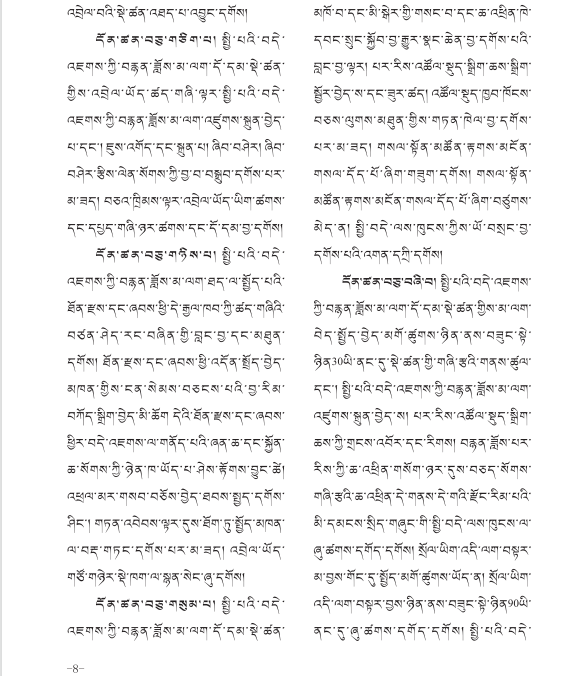 འབྲེལ་བའི་སྡེ་ཚན་འཐད་པ་འབྱུང་དགོས།
དོན་ཚན་བཅུ་གཅིག་པ། སྤྱི་པའི་བདེ་
འཇགས་ཀྱི་བརྙན་ཟློས་མ་ལག་དོ་དམ་སྡེ་ཚན་
གྱིས་འབྲེལ་ཡོད་ཚད་གཞི་ལྟར་སྤྱི་པའི་བདེ་
འཇགས་ཀྱི་བརྙན་ཟློས་མ་ལག་འཛུགས་སྐྲུན་བྱེད་
པ་དང་། ཇུས་འགོད་དང་སྐྲུན་པ། ཞིབ་བཤེར། ཞིབ་
བཤེར་རྩིས་ལེན་སོགས་ཀྱི་བྱ་བ་བསྒྲུབ་དགོས་པར་
མ་ཟད། བཅའ་ཁྲིམས་ལྟར་འབྲེལ་ཡོད་ཡིག་ཚགས་
དང་དཔྱད་གཞི་ཉར་ཚགས་དང་དོ་དམ་བྱ་དགོས།
དོན་ཚན་བཅུ་གཉིས་པ། སྤྱི་པའི་བདེ་
འཇགས་ཀྱི་བརྙན་ཟློས་མ་ལག་ཐད་ལ་སྤྱོད་པའི་
ཐོན་རྫས་དང་ཞབས་ཕྱི་དེ་རྒྱལ་ཁབ་ཀྱི་ཚད་གཞིའི་
བཙན་ཤེད་རང་བཞིན་གྱི་བླང་བྱ་དང་མཐུན་
དགོས། ཐོན་རྫས་དང་ཞབས་ཕྱི་འདོན་སྤྲོད་བྱེད་
མཁན་གྱིས་ངན་སེམས་བཅངས་པའི་བྱ་རིམ་
བཀོད་སྒྲིག་བྱེད་མི་ཆོག དེའི་ཐོན་རྫས་དང་ཞབས་
ཕྱིར་བདེ་འཇགས་ལ་གནོད་པའི་ཞན་ཆ་དང་སྐྱོན་
ཆ་སོགས་ཀྱི་ཉེན་ཁ་ཡོད་པ་ཤེས་རྟོགས་བྱུང་ཚེ།
འཕྲལ་མར་གསབ་བཅོས་བྱེད་ཐབས་སྤྱད་དགོས་
ཤིང་། གཏན་འབེབས་ལྟར་དུས་ཐོག་ཏུ་སྤྱོད་མཁན་
ལ་བརྡ་གཏང་དགོས་པར་མ་ཟད། འབྲེལ་ཡོད་
གཙོ་གཉེར་སྡེ་ཁག་ལ་སྙན་སེང་ཞུ་དགོས།
དོན་ཚན་བཅུ་གསུམ་པ། སྤྱི་པའི་བདེ་
འཇགས་ཀྱི་བརྙན་ཟློས་མ་ལག་དོ་དམ་སྡེ་ཚན་
མཁོ་བ་དང་མི་སྒེར་གྱི་གསང་བ་དང་ཆ་འཕྲིན་ཁེ་
དབང་སྲུང་སྐྱོབ་བྱ་རྒྱུར་སྣང་ཆེན་བྱ་དགོས་པའི་
བླང་བྱ་ལྟར། པར་རིས་འཚོལ་སྡུད་སྒྲིག་ཆས་སྒྲིག་
སྦྱོར་བྱེད་ས་དང་ཟུར་ཚད། འཚོལ་སྡུད་ཁྱབ་ཁོངས་
བཅས་ལུགས་མཐུན་གྱིས་གཏན་ཁེལ་བྱ་དགོས་
པར་མ་ཟད། གསལ་སྟོན་མཚོན་རྟགས་མངོན་
གསལ་དོད་པོ་ཞིག་གཟུག་དགོས། གསལ་སྟོན་
མཚོན་རྟགས་མངོན་གསལ་དོད་པོ་ཞིག་བཙུགས་
མེད་ན། སྤྱི་བདེ་ལས་ཁུངས་ཀྱིས་ཡོ་བསྲང་བྱ་
དགོས་པའི་འགན་དཀྲི་དགོས།
དོན་ཚན་བཅུ་བཞི་བ། སྤྱི་པའི་བདེ་འཇགས་
ཀྱི་བརྙན་ཟློས་མ་ལག་དོ་དམ་སྡེ་ཚན་གྱིས་མ་ལག་
བེད་སྤྱོད་བྱེད་མགོ་ཚུགས་ཉིན་ནས་བཟུང་སྟེ་
ཉིན30ཡི་ནང་དུ་སྡེ་ཚན་གྱི་གཞི་རྩའི་གནས་ཚུལ་
དང་། སྤྱི་པའི་བདེ་འཇགས་ཀྱི་བརྙན་ཟློས་མ་ལག་
འཛུགས་སྐྲུན་བྱེད་ས། པར་རིས་འཚོལ་སྡུད་སྒྲིག་
ཆས་ཀྱི་གྲངས་འབོར་དང་རིགས། བརྙན་ཟློས་པར་
རིས་ཀྱི་ཆ་འཕྲིན་གསོག་ཉར་དུས་བཅད་སོགས་
གཞི་རྩའི་ཆ་འཕྲིན་དེ་གནས་དེ་གའི་རྫོང་རིམ་པའི་
མི་དམངས་སྲིད་གཞུང་གི་སྤྱི་བདེ་ལས་ཁུངས་ལ་
ཞུ་ཚགས་དགོད་དགོས། སྲོལ་ཡིག་འདི་ལག་བསྟར་
མ་བྱས་གོང་དུ་སྤྱོད་མགོ་ཚུགས་ཡོད་ན། སྲོལ་ཡིག་
འདི་ལག་བསྟར་བྱས་ཉིན་ནས་བཟུང་སྟེ་ཉིན90ཡི་
ནང་དུ་ཞུ་ཚགས་དགོད་དགོས། སྤྱི་པའི་བདེ་
-8-